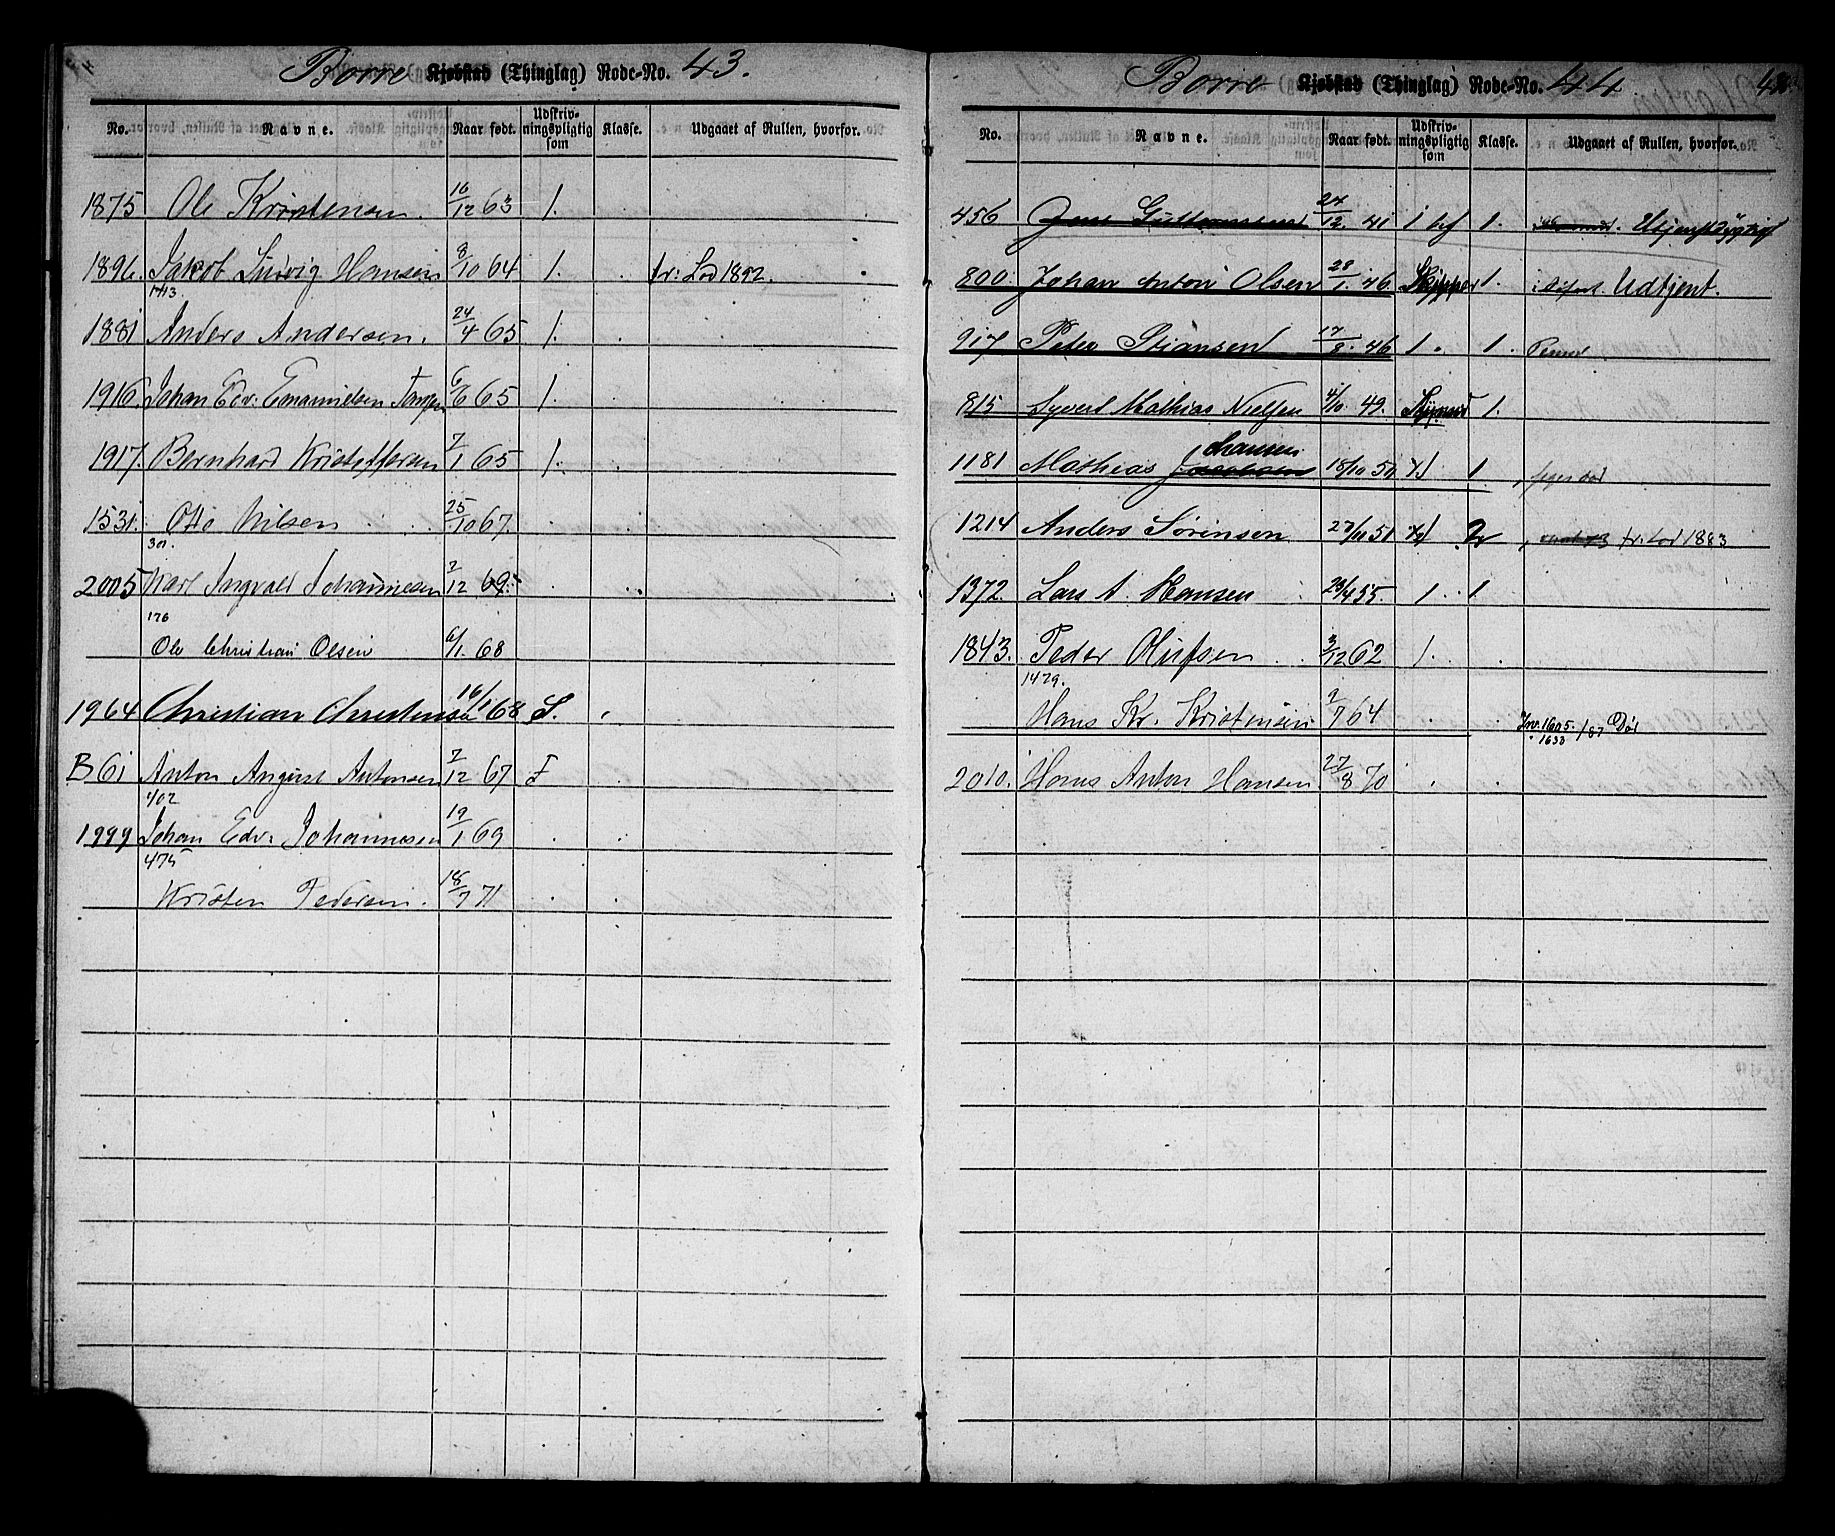 Borre Kjøbstad (Thinglag) Rode-No. 43.
No. Navne. Naar født. Udskriv-ningspligtig som Klasse. Udgaaet af Rullen, hvorfor.
1875 Ole Kristensen. 16/12 63 1.
1896. Jakob Ludvig Hansen 8/10 64 1. fr: Lod 1892.
1713.
1881 Anders Andersen. 24/4 65 1.
1916. Johan Edv: Emanuelsen 6/6 65 1.
1917. Bernhard Kristoffersen 7/1 65 1.
1531. Otto Nilsen 25/10 67.
301.
2005 Karl Ingvald Johannesen 2/12 69.
176
Ole Christian Olsen 6/1. 68
1964 Christian Christensen 16/1 68 S.
B 61 Anton August Antonsen 7/12 67 F
402
1999 Johan Edv: Johannesen 19/1 69
475
Kristen Pedersen. 18/7 71
Borre Kjøbstad (Thinglag) Rode-No. 44
No. Navne. Naar født. Udskriv-ningspligtig som Klasse. Udgaaet af Rullen, hvorfor.
456 Jens Guttormsen 24/12. 41 1 bf 1. Utjenstdygtig
800. Johan Anton Olsen 28/1. 46 Skipper 1. Udtjent.
917 Peter Stiansen 17/8. 46 1. 1.
815 Syvert Mathias Nielsen 4/10. 49. Styrmd 1.
Johansen
1181 Mathias Jacobsen 18/10 50 1
1214 Anders Sørensen 27/11 51 2 fr: Lod 1883
1372. Lars A. Hansen 29/4 55. 1 1
1843. Peder Olufsen 3/12 62 1.
1479.
Hans Kr. Kristensen 2/7 64 Inr. 1605./87 Død
1633
2010. Hans Anton Hansen 27/8 70